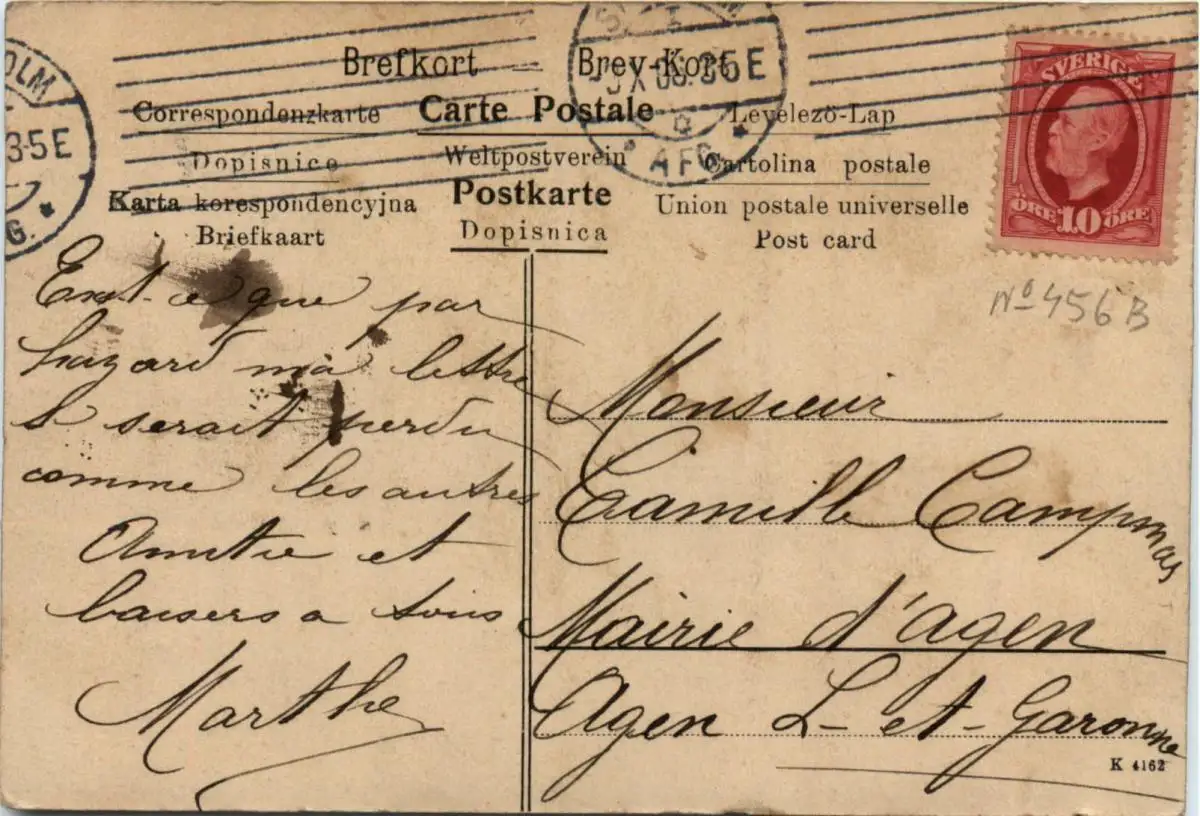 Brefkort — Brev-Kort
Correspondenzkarte Carte Postale Levelezö-Lap
Dopisnice Weltpostverein Cartolina postale
Karta korespondencyjna Postkarte Union postale universelle
Briefkaart Dopisnica Post card
OLM
3-5 E
G. *
X 06. 3-5 E
* A F G. *
SVERIGE
ÖRE 10 ÖRE
No 456 B
Est-ce que par
hazard ma lettre
se serait perdu
comme les autres
Amitié et
baisers a tous
Marthe
Monsieur
Camille Campmas
Mairie d'agen
Agen L-et-Garonne
K 4162